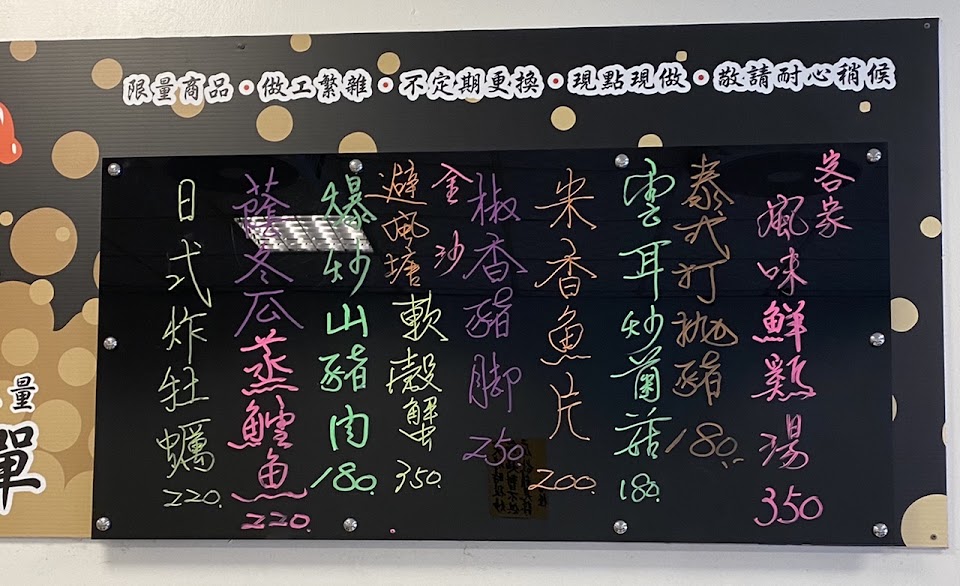 限量商品・做工繁雜・不定期更換・現點現做・敬請耐心稍候
客家風味鮮雞湯 350
泰式打拋豬 180.
雲耳炒菌菇 180.
米香魚片 200.
椒香豬腳 250
金沙
避風塘軟殼蟹 350.
爆炒山豬肉 180.
蔭冬瓜蒸鱈魚 220.
日式炸牡蠣 220.
量
單